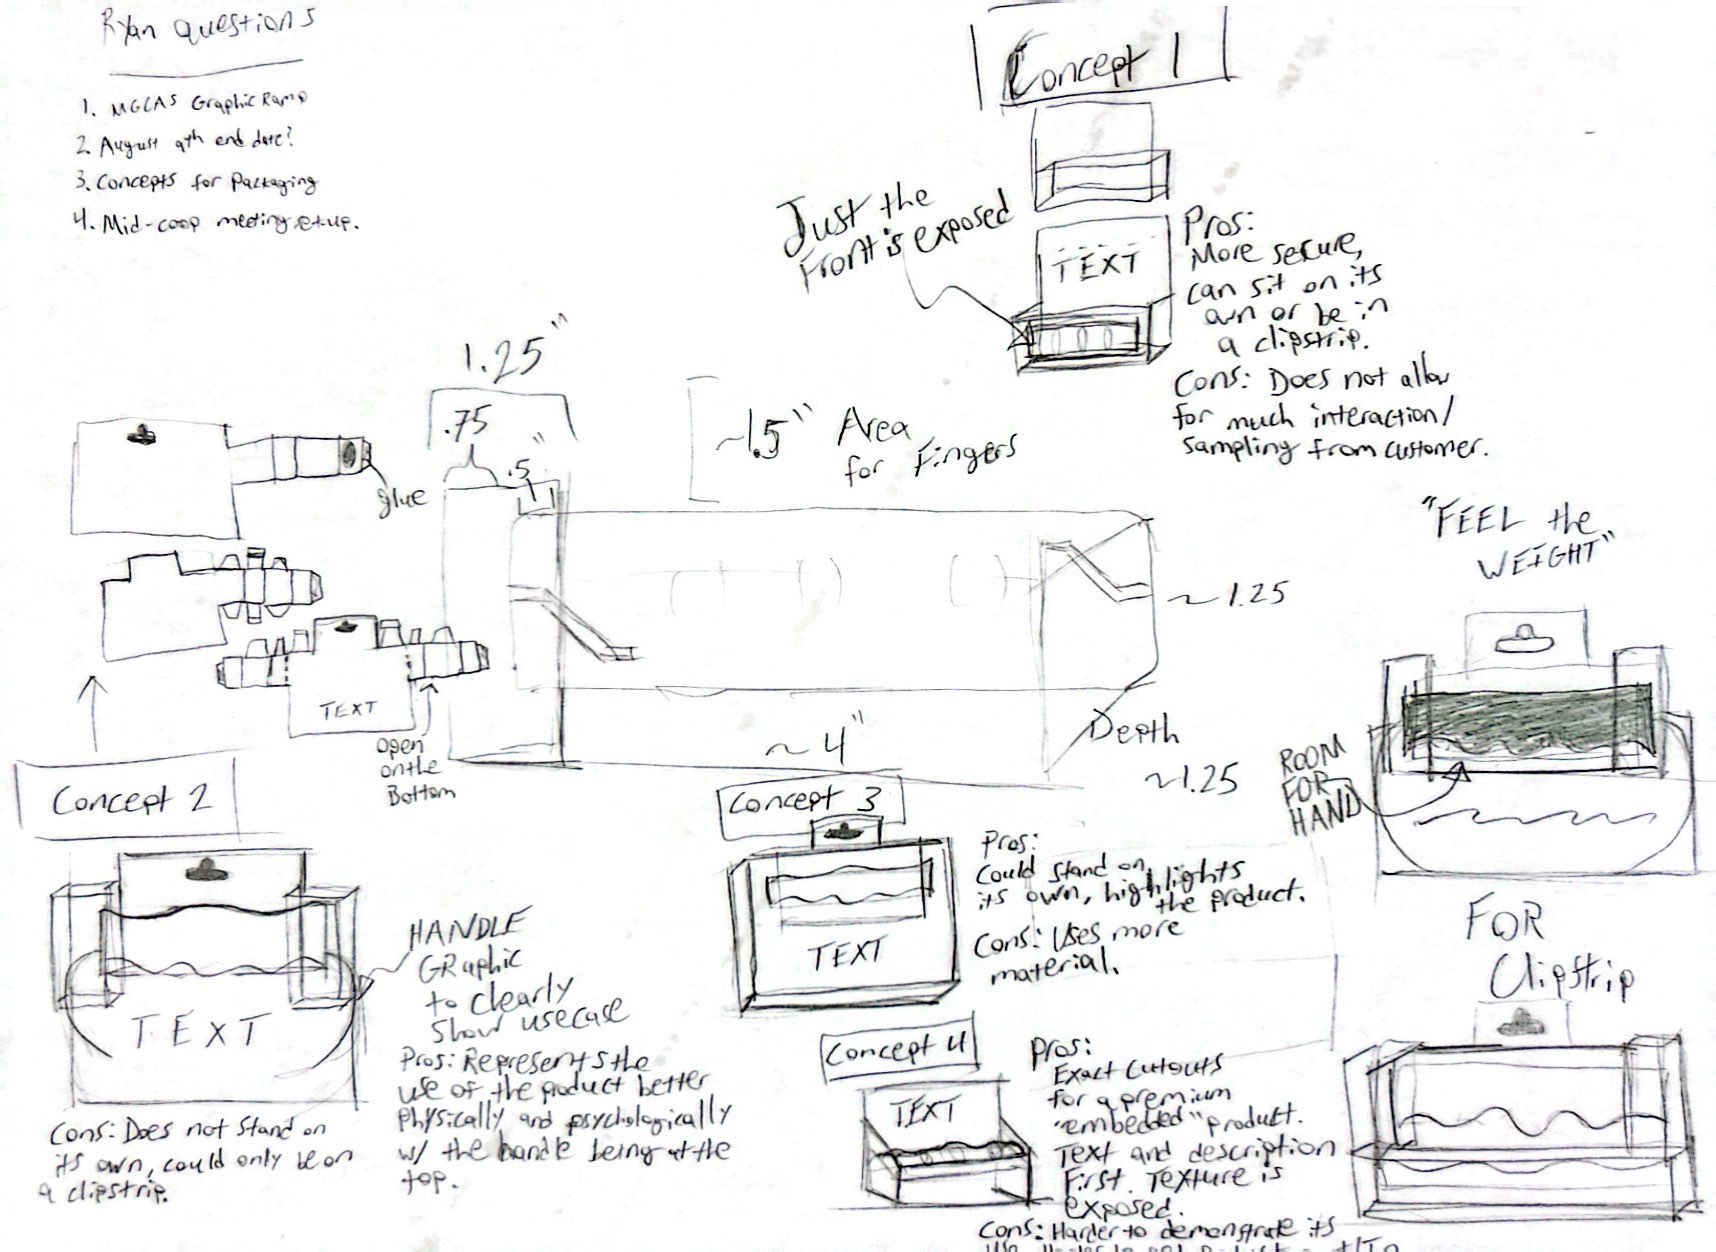 Ryan questions
1. MGCAS Graphic Ramp
2. August 9th end date?
3. Concepts for Packaging
4. Mid-coop meeting set-up.
Concept 1
Just the
Front is exposed
TEXT
Pros:
More secure,
can sit on its
own or be in
a clipstrip.
Cons: Does not allow
for much interaction/
sampling from customer.
1.25"
.75
.5"
~1.5" Area
for Fingers
glue
~1.25
~4"
Depth
~1.25
TEXT
open
on the
Bottom
Concept 2
HANDLE
GRaphic
to clearly
show usecase
TEXT
Pros: Represents the
use of the product better
physically and psychologically
w/ the handle being at the
top.
Cons: Does not stand on
its own, could only be on
a clipstrip.
Concept 3
TEXT
Pros:
Could stand on
its own, highlights
the product.
Cons: Uses more
material.
Concept 4
TEXT
Pros:
Exact cutouts
for a premium
"embedded" product.
Text and description
First. Texture is
exposed.
Cons: Harder to demonstrate its
"FEEL the
WEIGHT"
ROOM
FOR
HAND
FOR
Clipstrip